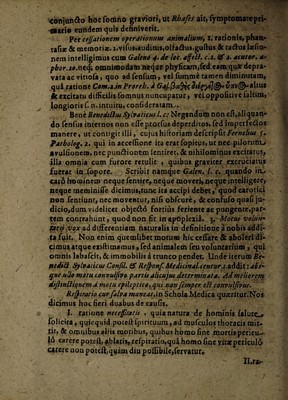 conjuncto hoc somno graviori, ut Rhases ait, symptomate pri-
mario eundem quis definiverit.
Per cessationem operationum animalium, 1. rationis, phan-
tasiæ & memoriæ. 2. visus, auditus, olfactus, gustus & tactus læsio-
nem intelligimus cum Galeno 4. de loc. affect. c. 2. & 2. acutor. a-
phor. 20. neq; omnimodam neque physicam, sed eam quæ depra-
vata ac vitiosa, quo ad sensum, vel summè tamen diminutam,
quâ ratione Com. 2. in Prorrh. à alius
& excitatu difficilis somnus nuncupatur, vel oppositivè saltim,
longioris f. n. intuitu, consideratam.
Benè Benedictus Sylvaticus l. c: Negandum non est, aliquan-
do sensus internos non esse prorsus deperditos, sed imperfectos
manere, ut contigit illi, cujus historiam descripsit Fernelius 5.
Patholog. 2. qui in accessione ita erat sopitus, ut nec pilorum
avulsionem, nec punctionem sentiret, & nihilominus excitatus,
illa omnia cum furore retulit, quibus graviter excruciatus
fuerat in sopore. Scribit namque Galen. l. c. quando in
caro hominem neque sentire, neque moveri, neque intelligere,
neque meminisse dicimus, tunc ita accipi debet, quod carotici
non sentiunt, nec moventur, nisi obscurè, & confuso quasi ju-
dicio, dum videlicet objecto fortiùs feriente ac pungente, par-
tem contrahunt, quod non fit in apoplexiâ. 3. Motus volun-
tarii vox ad differentiam naturalis in definitione à nobis addi-
ta fuit. Non enim quemlibet motum hic cessare & aboleri di-
cimus atque existimamus, sed animalem seu voluntarium, qui
omnis labascit, & immobilis à trunco pendet. Unde iterum Be-
nedict. Sylvaticus Consil. & Respons. Medicinal. centur. 2. addit: abs-
que ullo motu convulsivo partis alicujus determinatæ. Ad meliorem
distinctionem à motu epileptico, qui non semper est convulsivus.
Respiratio cur salva maneat, in Schola Medica quæritur. Nos
dicimus hoc fieri duabus de caussis.
I. ratione necessitatis, quia natura de hominis salute
solicita, quicquid potest spirituum, ad musculos thoracis mit-
tit, & omnibus aliis motibus, quibus homo sine mortis pericu-
lo carere potest, ablatis, respiratio, quâ homo sine vitæ periculô
carere non potest, quàm diu possibile, servatur.
II. ra-